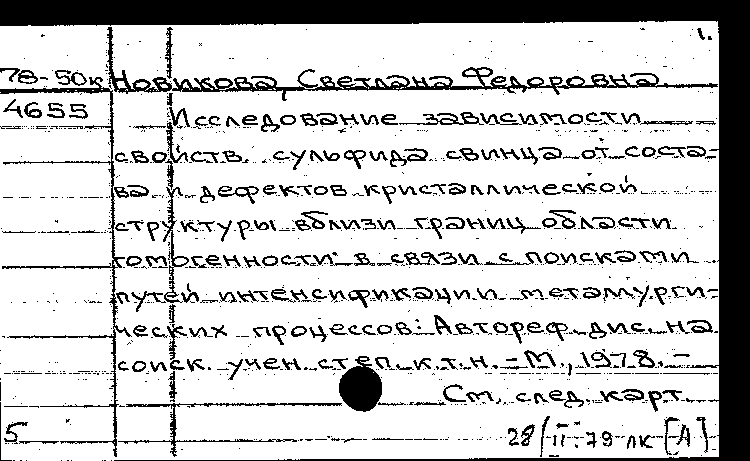 1.
78-50к Новикова, Светлана Федоровна
4655 Исследование зависимости
свойств сульфида свинца от соста-
ва и дефектов кристаллической
структуры вблизи границ области
гомогенности в связи с поисками
путей интенсификации металлурги-
ческих процессов: Автореф. дис. на
соиск. учен. степ. к.т.н. - М., 1978. -
См. след. карт.
5 28/II:79 лк [А]